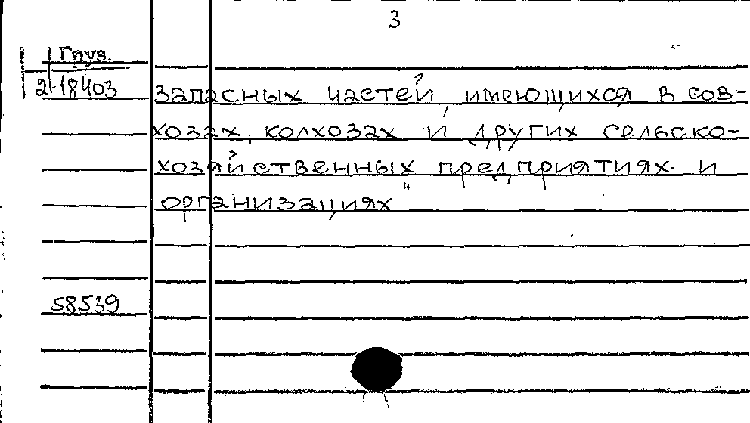 3
Груз.
2-18403
запасных частей, имеющихся в сов-
хозах, колхозах и других сельско-
хозяйственных предприятиях и
организациях"
58539